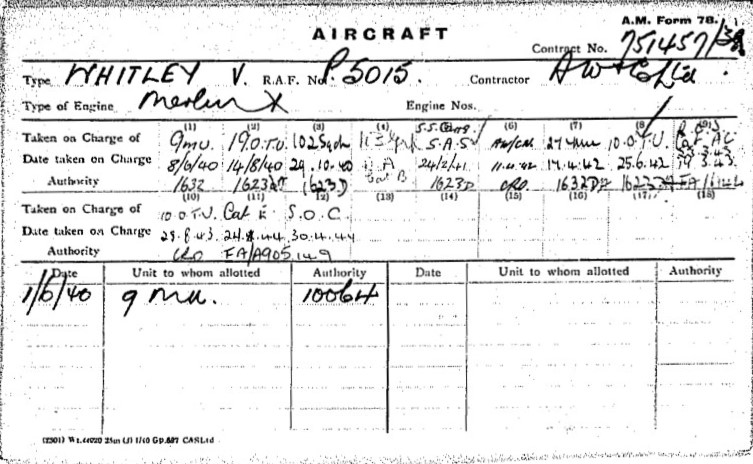 A.M. Form 78.
AIRCRAFT
Contract No. 751457/38
Type WHITLEY V. R.A.F. No. P.5015. Contractor A W + Co Ltd.
Type of Engine Merlin X Engine Nos.
(1) (2) (3) (4) (6) (7) (8) (9)
Taken on Charge of 9 MU. 19 O.T.U. 102 Sqdn S.A.S. 27 MU 10 O.T.U.
Date taken on Charge 8/6/40 14/8/40 29.10.40 24/2/41 11.4.42 17.4.42 25.6.42 19.3.43
Authority 1632 1623D 1623D CRO 1632DA
(10) (11) (12) (13) (14) (15) (16) (17) (18)
Taken on Charge of 10 O.T.U. Cat E S.O.C.
Date taken on Charge 29.8.43 24.8.44 30.4.44
Authority CRO FA/A905.149
Date Unit to whom allotted Authority Date Unit to whom allotted Authority
1/6/40 9 MU. 10064
(2301) Wt.44020 25m (3) 1/40 Gp.687 C&SLtd